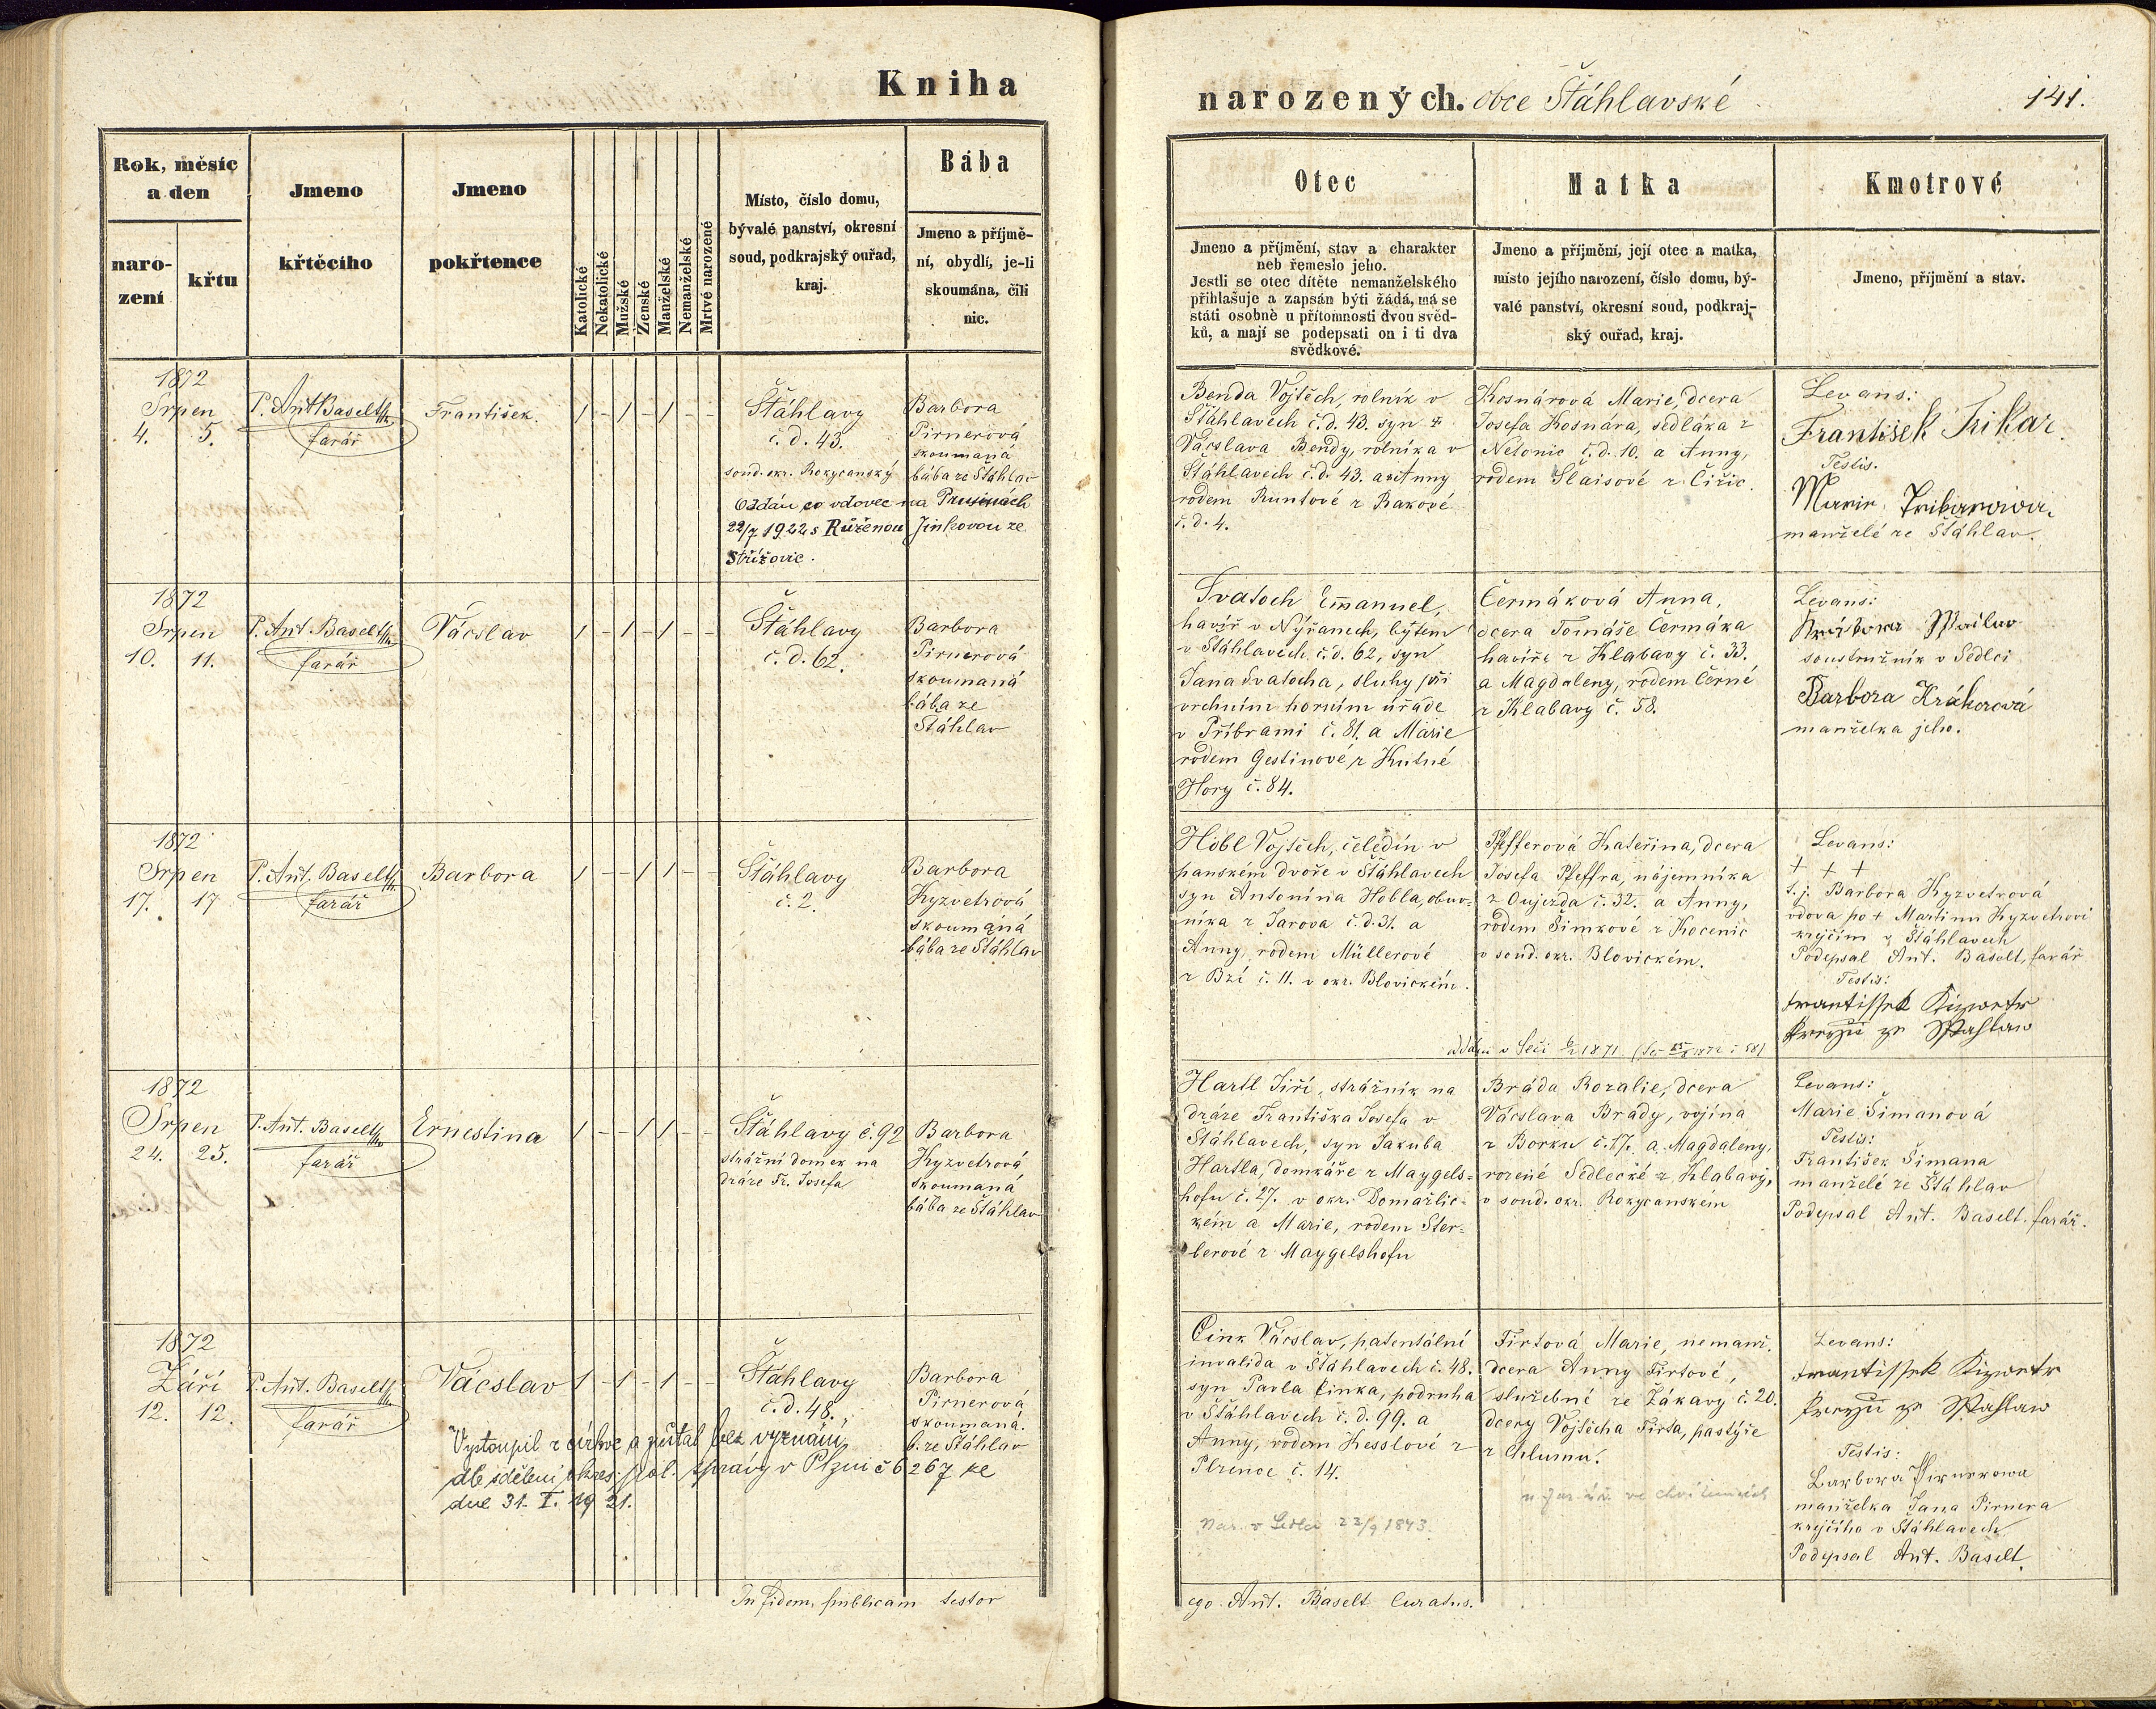 Kniha
narozených. obce Štáhlavské
141.
Rok, měsíc
a den
naro-
zení
křtu
Jmeno
křtěcího
Jmeno
pokřtence
Katolické
Nekatolické
Mužské
Ženské
Manželské
Nemanželské
Mrtvé narozené
Místo, číslo domu,
bývalé panství, okresní
soud, podkrajský ouřad,
kraj.
Bába
Jmeno a příjmě-
ní, obydlí, je-li
skoumána, čili
nic.
Otec
Jmeno a příjmění, stav a charakter
neb řemeslo jeho.
Jestli se otec dítěte nemanželského
přihlašuje a zapsán býti žádá, má se
státi osobně u přítomnosti dvou svěd-
ků, a mají se podepsati on i ti dva
svědkové.
Matka
Jmeno a příjmění, její otec a matka,
místo jejího narození, číslo domu, bý-
valé panství, okresní soud, podkraj-
ský ouřad, kraj.
Kmotrové
Jmeno, příjmění a stav.
1872
Srpen
4. 5.
P. Ant Baselt
farář
František.
/ - / - / - -
Štáhlavy
č. d. 43.
soud. okr. Rokycanský
Barbora
Pirnerová
skoumaná
bába ze Štáhlav
Oddán co vdovec na Prusinách
22/7 1922 s Růženou Jinkovou ze
Střížovic.
Benda Vojtěch, rolník v
Štáhlavech č. d. 43. syn
Vácslava Bendy, rolníka v
Štáhlavech č. d. 43. a Anny
rodem Runtové z Rakové
č. d. 4.
Kosnárová Marie, dcera
Josefa Kosnára, sedláka z
Netonic č. d. 10. a Anny,
rodem Slaisové z Čižic.
Levans:
František
Testis.
manželé ze Štáhlav.
1872
Srpen
10. 11.
P. Ant. Baselt
farář
Vácslav
/ - / - / - -
Štáhlavy
č. d. 62.
Barbora
Pirnerová
skoumaná
bába ze
Štáhlav
Svatoch Emanuel,
havíř v Nýřanech, bytem
v Štáhlavech č. d. 62, syn
Jana Svatocha, sluhy při
vrchním horním úřadě
v Příbrami č. 81. a Marie
rodem Gestinové z Kutné
Hory č. 84.
Čermáková Anna,
dcera Tomáše Čermáka
havíře z Klabavy č. 33.
a Magdaleny, rodem Černé
z Klabavy č. 58.
Levans:
soustružník v Sedlci
Barbora Kráhorová
manželka jeho.
1872
Srpen
17. 17
P. Ant. Baselt
farář
Barbora
/ - - / / - -
Štáhlavy
č. 2.
Barbora
Kyzvetrová
skoumaná
bába ze Štáhlav
Höbl Vojtěch, čeledín v
panském dvoře v Štáhlavech
syn Antonína Höbla, obuv-
níka z Jarova č. d. 31. a
Anny, rodem Müllerové
z Bzí č. 11. v okr. Blovickém.
Pfefferová Kateřina, dcera
Josefa Pfeffra, nájemníka
z Oujezda č. 32. a Anny,
rodem Šimkové z Kocenic
v soud. okr. Blovickém.
Levans:
+ + +
t. j. Barbora Kyzvetrová
vdova po + Martinu Kyzvetrovi
krejčím v Štáhlavech
Podepsal Ant. Baselt, farář
Testis:
Frantissek Kizwetr
Kreyzii ze Sstahlaw
1872
Srpen
24. 25.
P. Ant. Baselt
farář
Ernestina
/ - - / / - -
Štáhlavy č. 92
strážní domek na
dráze Fr. Josefa
Barbora
Kyzvetrová
skoumaná
bába ze Štáhlav
Hartl Jiří, strážník na
dráze Františka Josefa v
Štáhlavech, syn Jakuba
Hartla, domkáře z Maygels-
hofu č. 27. v okr. Domažlic-
kém a Marie, rodem Ster-
berové z Maygelshofu
Bráda Rozalie, dcera
Vácslava Brady, vojína
z Borku č. 17. a Magdaleny,
rozené Sedlecké z Klabavy,
v soud. okr. Rokycanském
Levans:
Marie Šimanová
Testis:
František Šimana
manželé ze Štáhlav
Podepsal Ant. Baselt. farář.
1872
Září
12. 12.
P. Ant. Baselt
farář
Vácslav
/ - / - / - -
Štáhlavy
č. d. 48.
Barbora
Pirnerová
skoumaná.
b. ze Štáhlav
Vystoupil z církve a zůstal bez vyznání
dle sdělení okres. pol. správy v Plzni č 6267 ze
dne 31. I. 1921.
Cink Vácslav, patentální
invalida v Štáhlavech č. 48.
syn Pavla Cinka, podruha
v Štáhlavech č. d. 99. a
Anny, rodem Kesslové z
Plzence č. 14.
Nar. v Sedlci 22/9 1843.
Tirtová Marie, nemanž.
dcera Anny Tirtové,
služebné ze Žákavy č. 20.
dcery Vojtěcha Tirta, pastýře
z Chlumu.
Levans:
Frantissek Kizwetr
Kreyzii ze Sstahlaw
Testis:
Barbora Pirnerowa
manželka Jana Pirnera
krejčího v Štáhlavech
Podepsal Ant. Baselt.
In fidem publicam testor
ego Ant. Baselt Curatus.